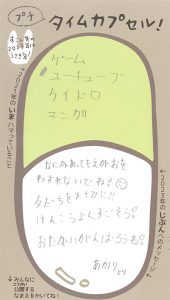 プチ
タイムカプセル!
すこし先の
2023年は
うさぎ年!
→2023年のいまハマっていること
ゲーム
ユーチューブ
ケイドロ
マンガ
←2023年のじぶんへのメッセージ
なにがあってもえがおを
わすれないでね?
友だちを大切に!!
けんこうよくすごそう。
おたがいがんばろうね。
あかりより
↓みんなに
公開する
なまえをかいてね!